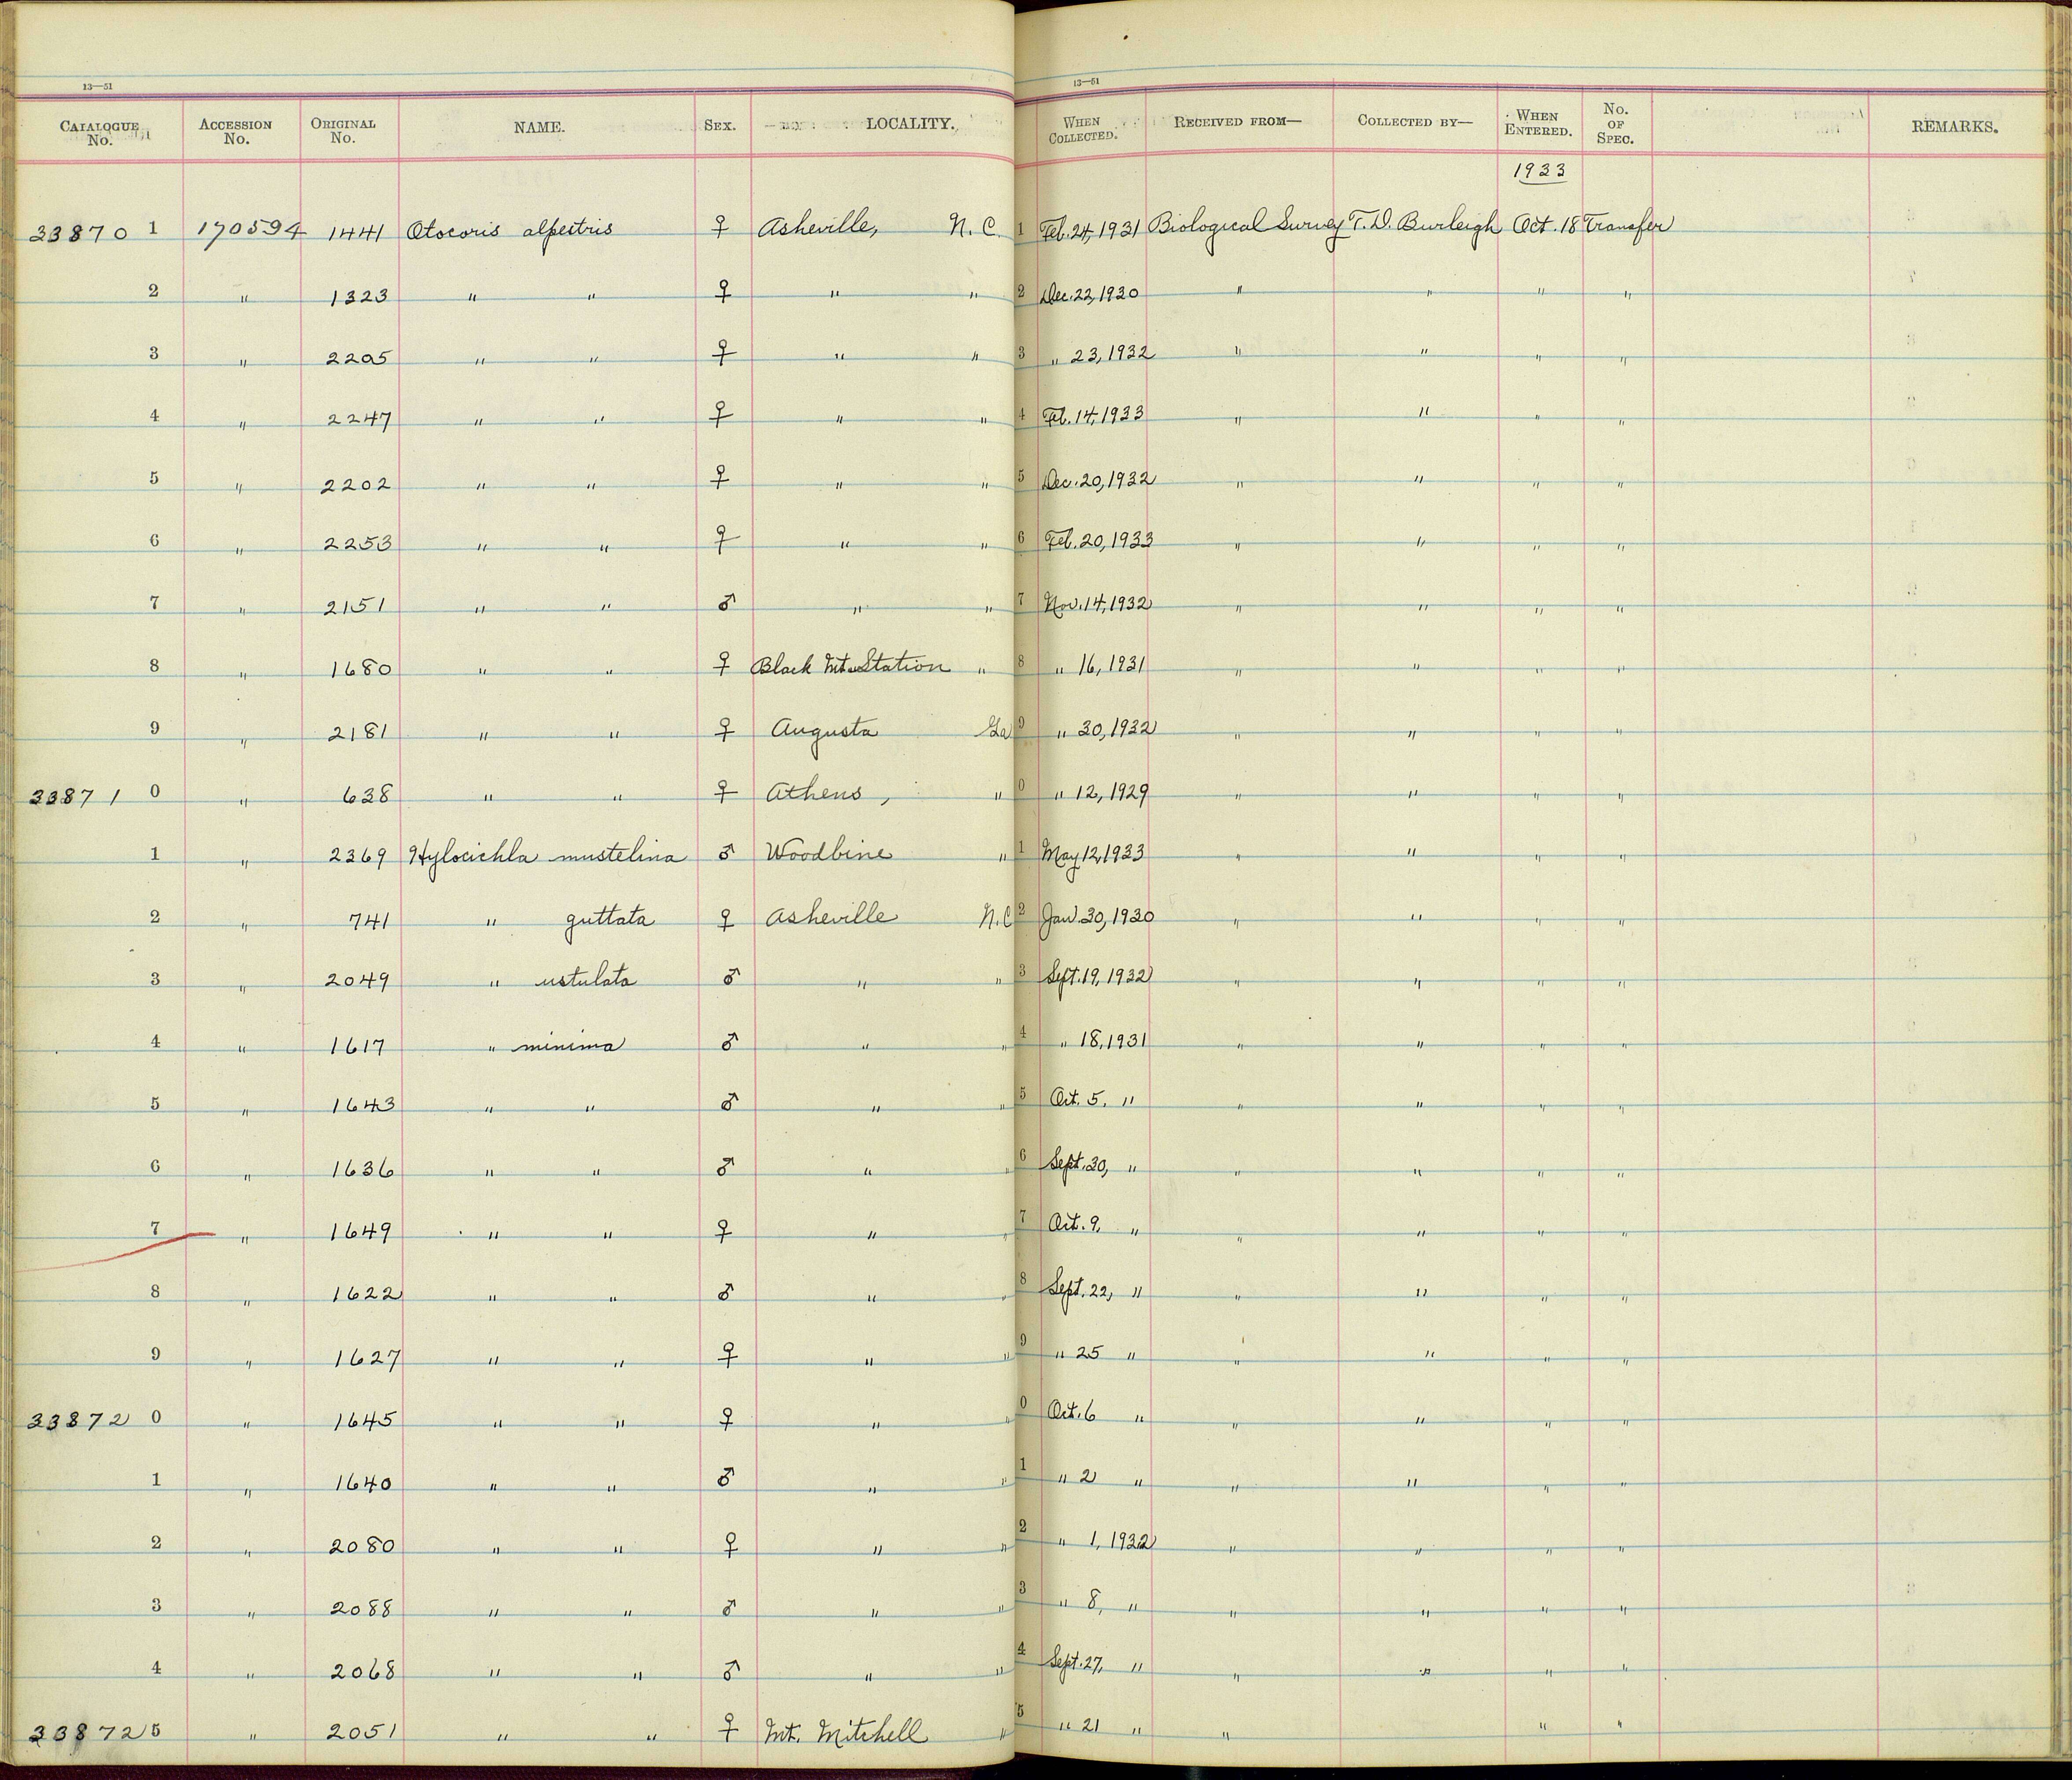 13—51 13—51
CATALOGUE No. ACCESSION No. ORIGINAL No. NAME. SEX. LOCALITY. WHEN COLLECTED. RECEIVED FROM— COLLECTED BY— WHEN ENTERED. No. OF SPEC. REMARKS.
1933
33870 1 170594 1441 Otocoris alpestris ♀ Asheville, N. C. 1 Feb. 24, 1931 Biological Survey T. D. Burleigh Oct. 18 Transfer
2 " 1323 " " ♀ " " 2 Dec. 22, 1930 " " " "
3 " 2205 " " ♀ " " 3 " 23, 1932 " " " "
4 " 2247 " " ♀ " " 4 Feb. 14, 1933 " " " "
5 " 2202 " " ♀ " " 5 Dec. 20, 1932 " " " "
6 " 2253 " " ♀ " " 6 Feb. 20, 1933 " " " "
7 " 2151 " " ♂ " " 7 Nov. 14, 1932 " " " "
8 " 1680 " " ♀ Black Mt. Station " 8 " 16, 1931 " " " "
9 " 2181 " " ♀ Augusta Ga 9 " 30, 1932 " " " "
33871 0 " 638 " " ♀ Athens, " 0 " 12, 1929 " " " "
1 " 2369 Hylocichla mustelina ♂ Woodbine " 1 May 12, 1933 " " " "
2 " 741 " guttata ♀ Asheville N.C 2 Jan. 30, 1930 " " " "
3 " 2049 " ustulata ♂ " " 3 Sept. 19, 1932 " " " "
4 " 1617 " minima ♂ " " 4 " 18, 1931 " " " "
5 " 1643 " " ♂ " " 5 Oct. 5, " " " " "
6 " 1636 " " ♂ " " 6 Sept. 30, " " " " "
7 " 1649 " " ♀ " " 7 Oct. 9, " " " " "
8 " 1622 " " ♂ " " 8 Sept. 22, " " " " "
9 " 1627 " " ♀ " " 9 " 25 " " " " "
33872 0 " 1645 " " ♀ " " 0 Oct. 6 " " " " "
1 " 1640 " " ♂ " " 1 " 2 " " " " "
2 " 2080 " " ♀ " " 2 " 1, 1932 " " " "
3 " 2088 " " ♂ " " 3 " 8, " " " " "
4 " 2068 " " ♂ " " 4 Sept. 27, " " " " "
33872 5 " 2051 " " ♀ Mt. Mitchell " 5 " 21 " " " "